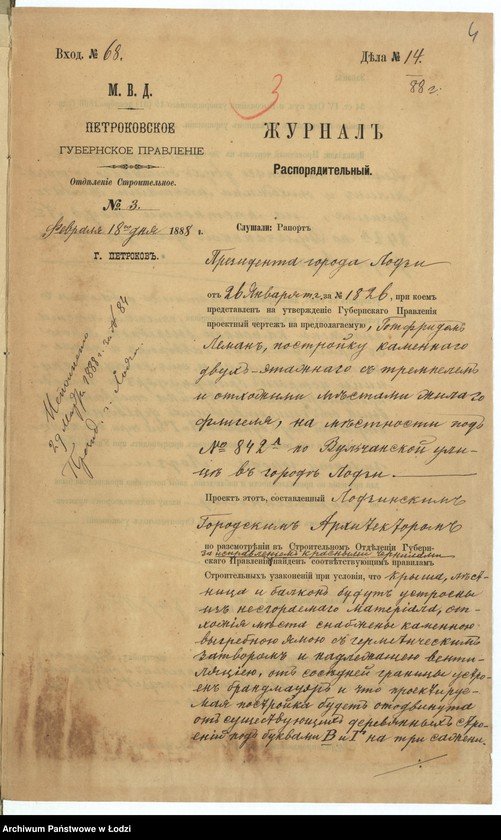 4
Вход. № 68.
Дѣла № 14.
88 г.
3
М. В. Д.
ПЕТРОКОВСКОЕ
ГУБЕРНСКОЕ ПРАВЛЕНІЕ
Отдѣленіе Строительное.
№ 3.
Февраля 18го дня 1888 г.
Г. ПЕТРОКОВЪ.
ЖУРНАЛЪ
Распорядительный.
Слушали: Рапортъ
Президента города Лодзи
отъ 26 Января т.г. за № 1826, при коемъ
представленъ на утвержденіе Губернскаго Правленія
проектный чертежъ на предполагаемую, Готфридомъ
Леманъ, постройку каменнаго
двухъ-этажнаго съ тремпелемъ
и отхожими мѣстами жилаго
флигеля, на мѣстности подъ
№ 842А по Вульчанской ули-
цѣ въ городѣ Лодзи.
Проектъ этотъ, составленный Лодзинскимъ
Городскимъ Архитекторомъ
по разсмотрѣніи въ Строительномъ Отдѣленіи Губерн-
за исправленіемъ красными чернилами
скаго Правленія найденъ соотвѣтствующимъ правиламъ
Строительныхъ узаконеній при условіи, что крыша, лѣст-
ница и балконъ будутъ устроены
изъ несгораемаго матеріала, от-
хожія мѣста снабжены каменною
выгребною ямою съ герметическимъ
затворомъ и надлежащею венти-
ляціею, отъ сосѣдней границы устро-
енъ брандмауэръ и что проектируе-
мая постройка будетъ отодвинута
отъ существующихъ деревянныхъ стро-
еній подъ буквами В и Г на три сажени.
Исполнено
29 Марта 1888 г. за № 84
г. Лодзи
Archiwum Państwowe w Łodzi